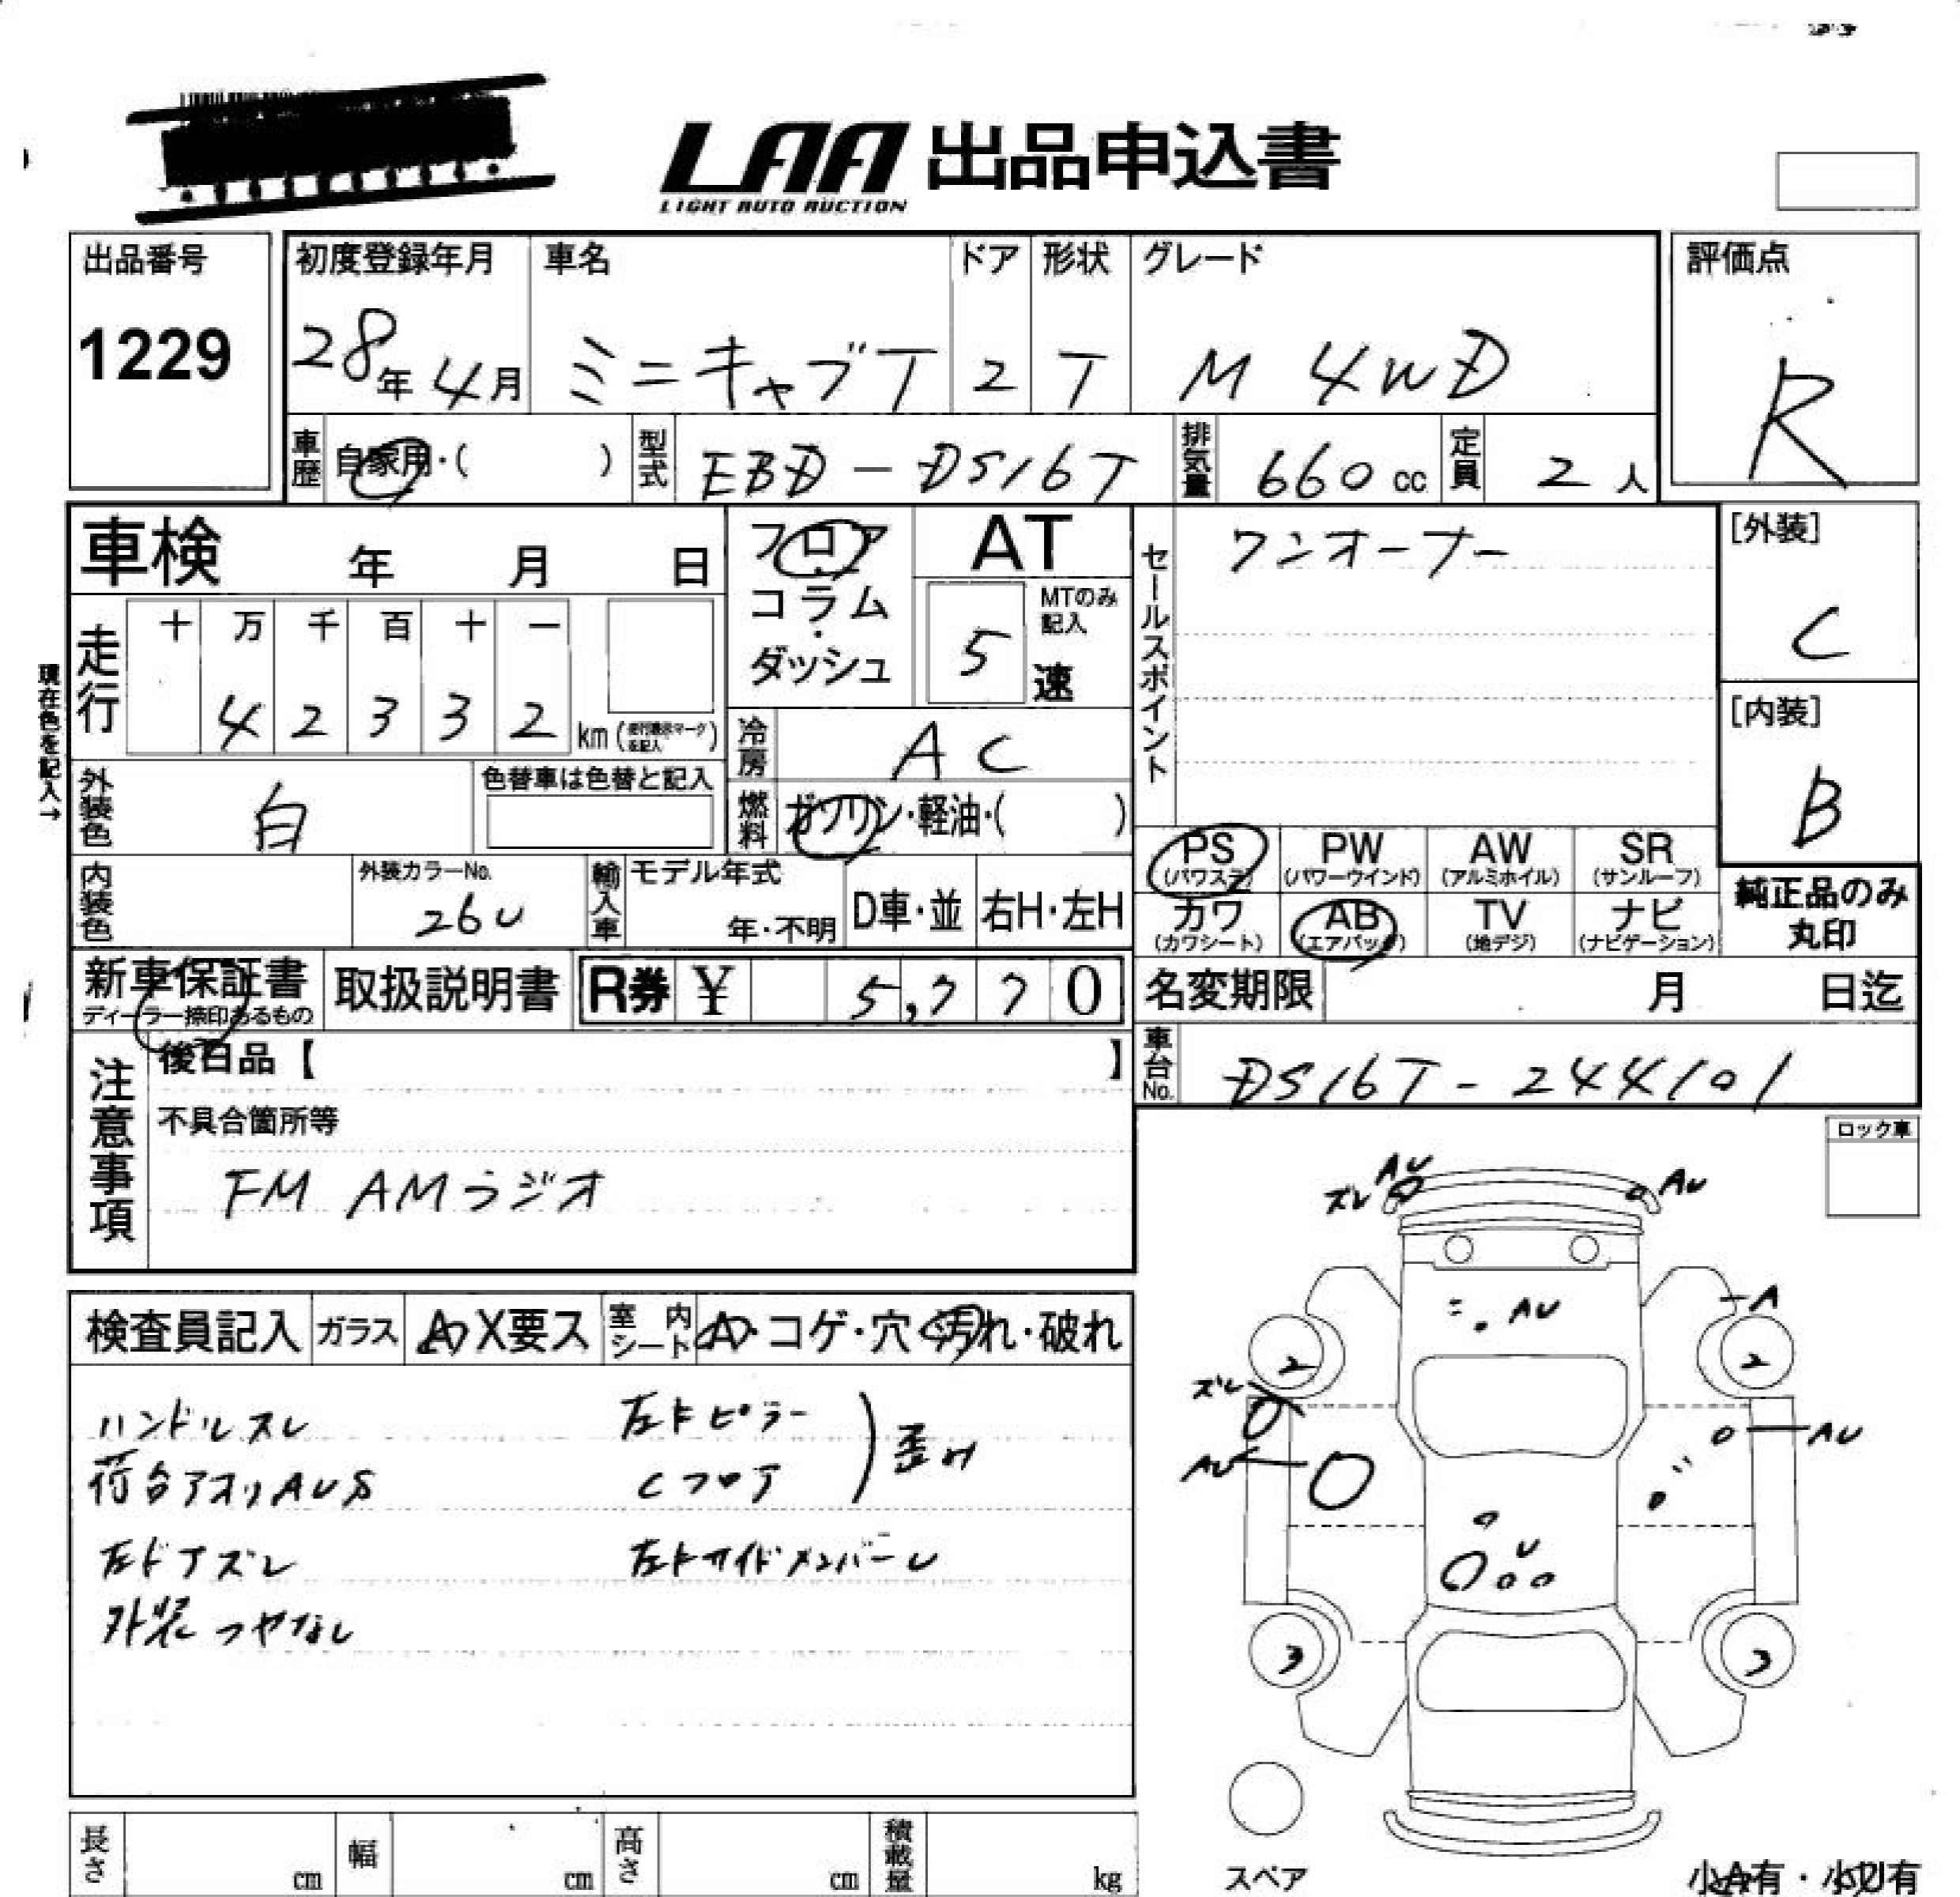 LAA 出品申込書
LIGHT AUTO AUCTION
出品番号
1229
初度登録年月
28年4月
車名
ミニキャブT
ドア
2
形状
T
グレード
M 4WD
評価点
R
車歴 自家用・( )
型式 EBD-DS16T
排気量 660 cc
定員 2 人
車検 年 月 日
フロア・コラム・ダッシュ
AT
MTのみ記入
5 速
セールスポイント
ワンオーナー
[外装]
C
[内装]
B
現在色を記入→
走行
十 万 千 百 十 一
4 2 3 3 2 km
冷房 AC
外装色 白
色替車は色替と記入
燃料 ガソリン・軽油・( )
PS (パワステ)
PW (パワーウインド)
AW (アルミホイル)
SR (サンルーフ)
カワ (カワシート)
AB (エアバッグ)
TV (地デジ)
ナビ (ナビゲーション)
純正品のみ
丸印
内装色
外装カラーNo.
26U
輸入車
モデル年式
年・不明
D車・並
右H・左H
新車保証書
ディーラー捺印あるもの
取扱説明書
R券 ¥ 5,770
名変期限 月 日迄
車台No. DS16T-244101
注意事項
後日品【 】
不具合箇所等
FM AMラジオ
ロック車
検査員記入
ガラス
A X要ス
室内シート
A・コゲ・穴・汚れ・破れ
ハンドルスレ
荷台アオリAUS
左ドアズレ
外装つやなし
左Bピラー
Cフロア
歪み
左サイドメンバーU
ズレ AU
AU
AU
A
2
2
ズレ
AU
AU
U
3
3
スペア
小A有・小U有
長さ cm
幅 cm
高さ cm
積載量 kg